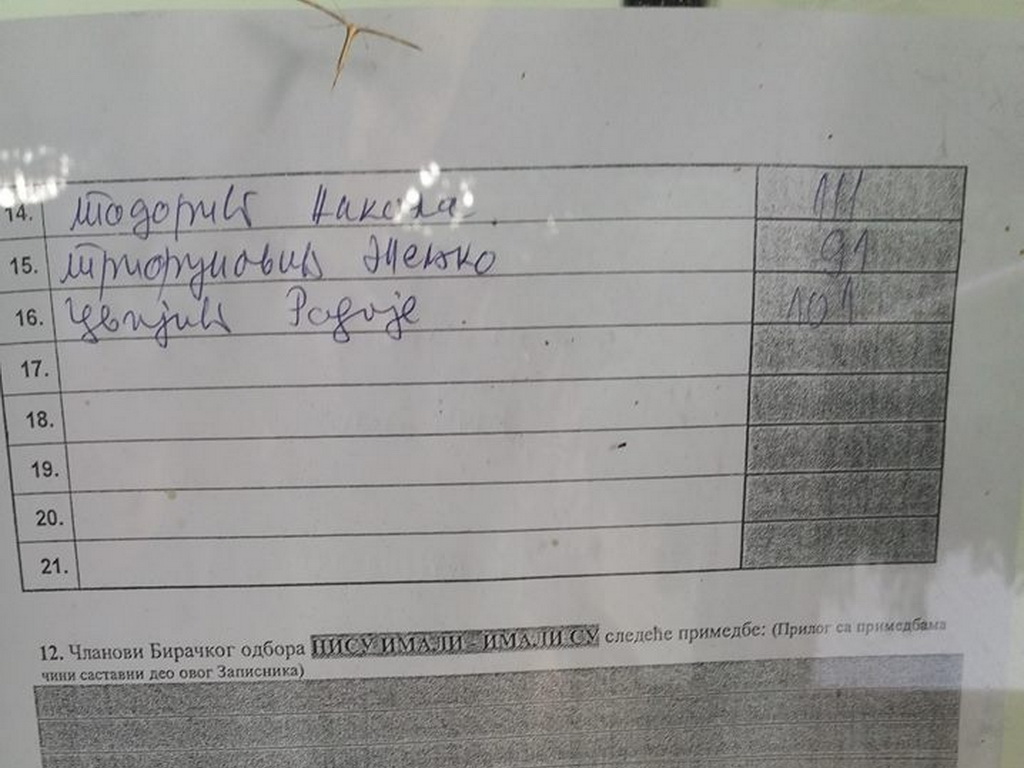 14. Тодорић Никола 111
15. Трифуновић Жељко 91
16. Цвијић Радоје 101
17.
18.
19.
20.
21.
12. Чланови Бирачког одбора НИСУ ИМАЛИ - ИМАЛИ СУ следеће примедбе: (Прилог са примедбама
чини саставни део овог Записника)